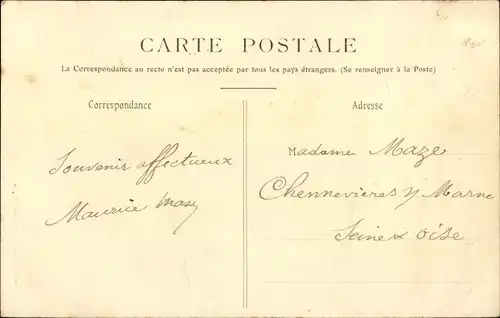 CARTE POSTALE
La Correspondance au recto n'est pas acceptée par tous les pays étrangers. (Se renseigner à la Poste)
Correspondance
Adresse
Souvenir affectueux
Maurice
Madame Maze
Chennevieres s/ Marne
Seine & Oise